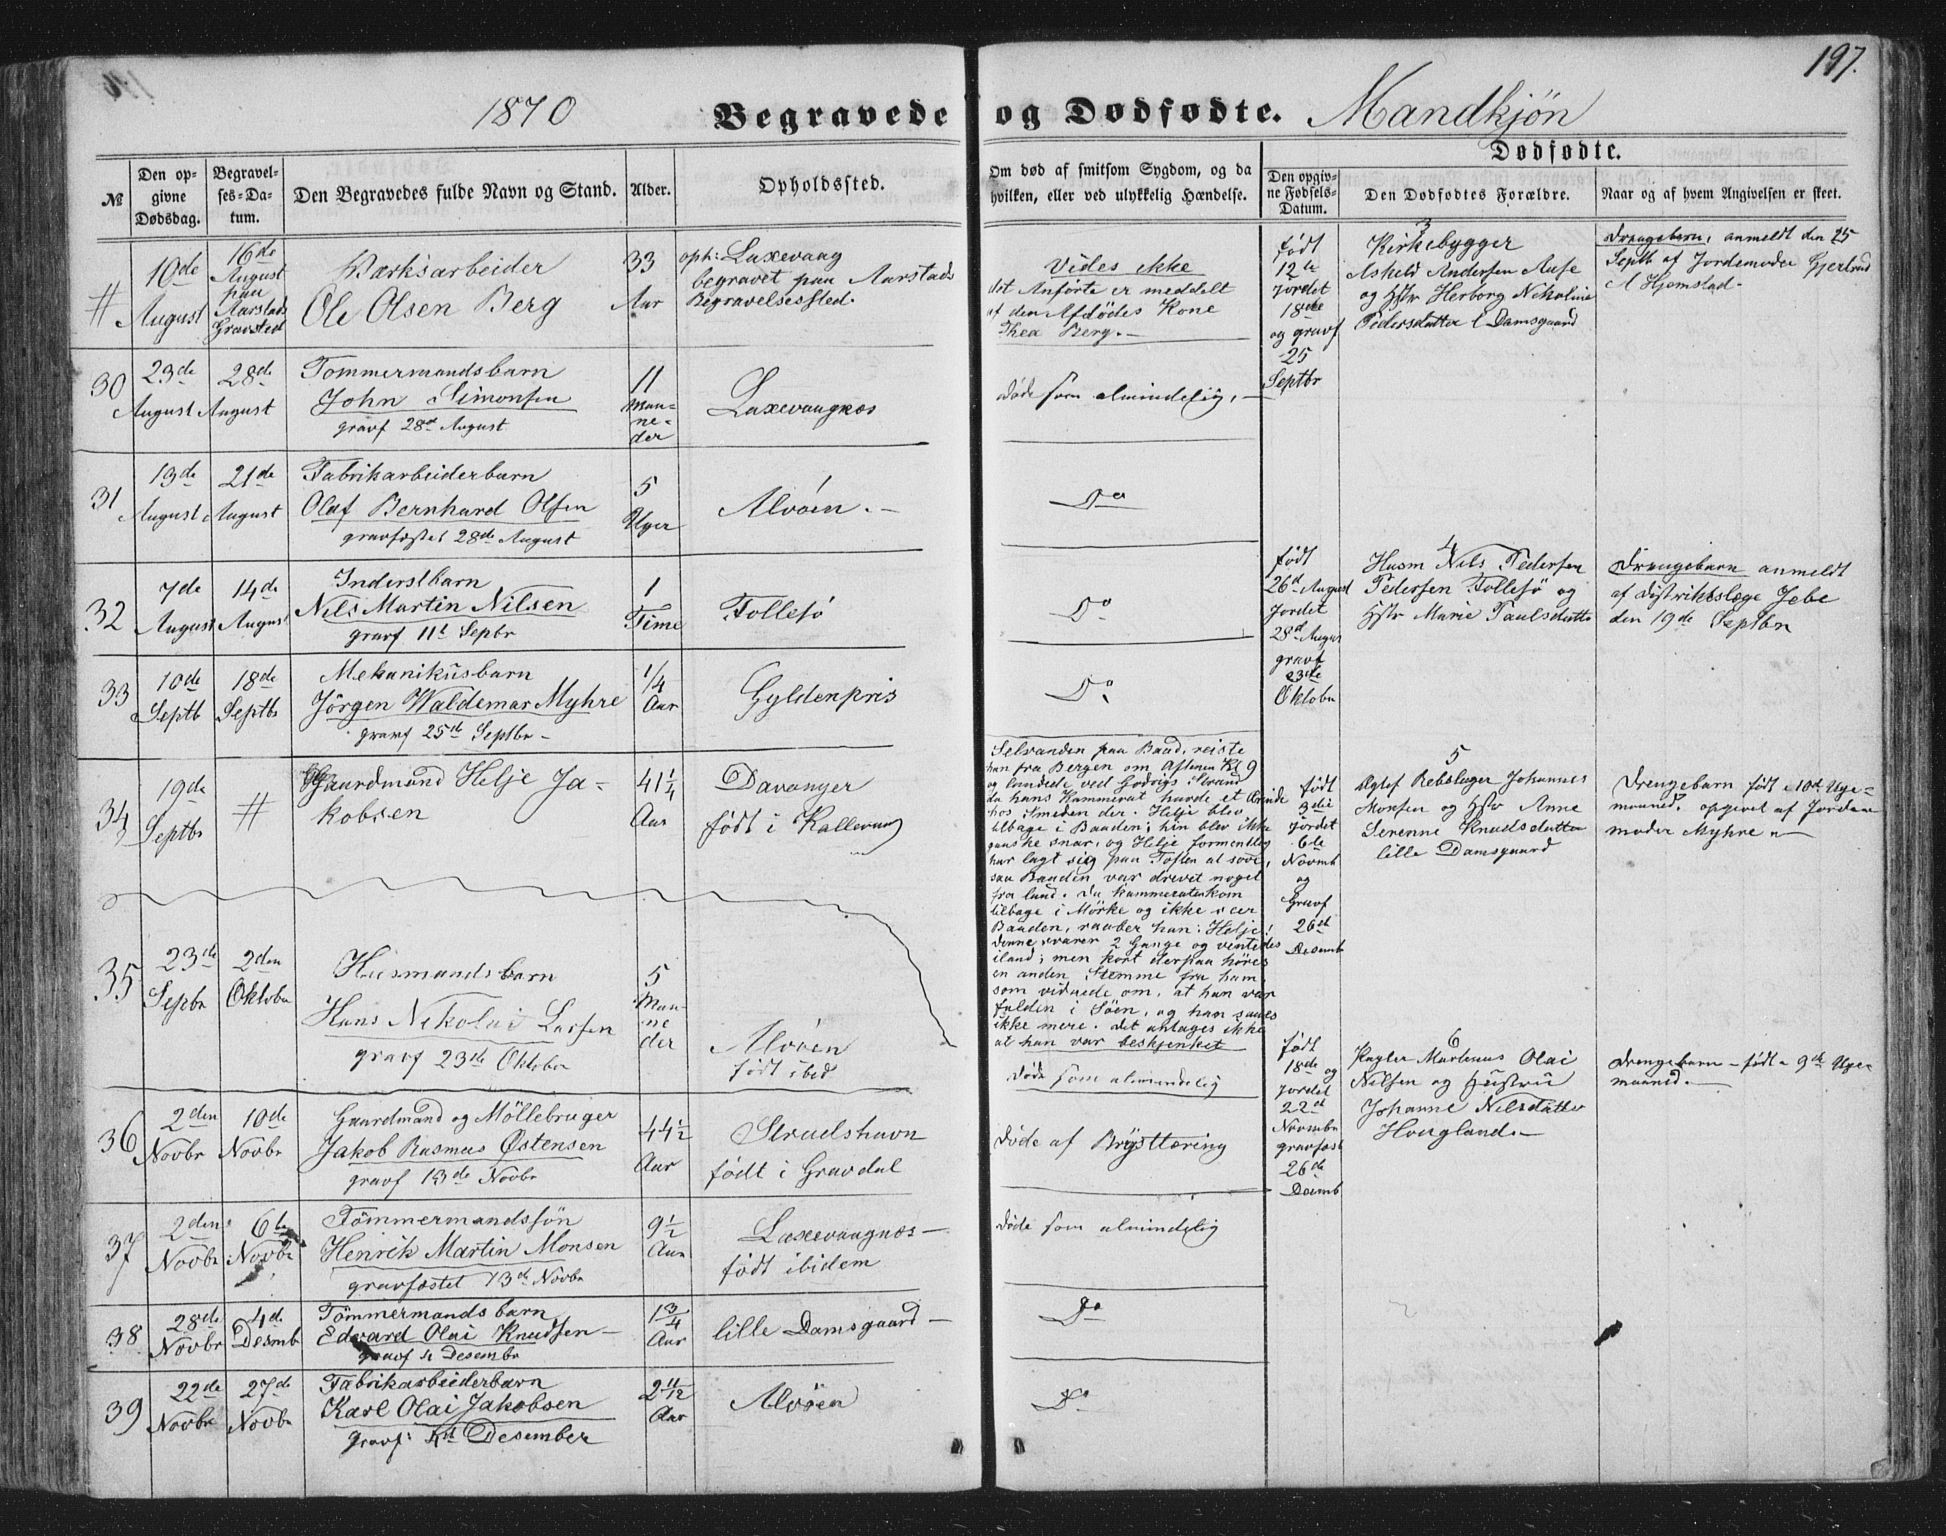 197.
1870 Begravede og Dødfødte. Mandkjön
№
Den opgivne Dødsdag.
Begravelses-Datum.
Den Begravedes fulde Navn og Stand.
Alder.
Opholdssted.
Om død af smitsom Sygdom, og da
hvilken, eller ved ulykkelig Hændelse.
Dødfødte.
Den opgivne Fødsels-Datum.
Den Dødfødtes Forældre.
Naar og af hvem Angivelsen er skeet.
#
10de
August
16de
August
paa
Aarstads
Gravsted
Værksarbeider
Ole Olsen Berg
33
Aar
oph: Laxevaag
begravet paa Aarstads
Begravelsessted.
Vides ikke
det Anførte er meddelt
af den Afdödes Kone
Thea Berg.
30
23de
August
28de
August
Tømmermandsbarn
John Simonsen
gravf 28de August
11
Maa-
ne-
der
Laxevaagnæs
døde som almindelig,
31
13de
August
21de
August
Fabrikarbeiderbarn
Olaf Bernhard Olsen
gravfæstet 28de August
5
Uger
Alvöen.
Do
32
7de
August
14de
August
Inderstbarn
Nils Martin Nilsen
gravf 11t Sepbr
1
Time
Follesö
Do
33
10de
Septb
18de
Septbr
Mekanikusbarn
Jörgen Waldemar Myhre
gravf 25de Septbr
1/4
Aar
Gyldenpris
Do
34
19de
Septbr
#
Gaardmand Helje Ja-
kobsen
41 1/4
Aar
Davanger
født i Kallevaag
Selvanden paa Baad, reiste
han fra Bergen om Aftenen Kl 9
og landede ved Godvigs Strand
da hans Kammerat havde et Ærinde
hos Smeden der. Helje blev
tilbage i Baaden; hin blev ikke
ganske snar, og Helje formentlig
har lagt sig paa Toften at sove,
saa Baaden var drevet noget
fra land. Da kammeraten kom
tilbage i Mörke og ikke ser
Baaden, raaber han: Helje!
denne svarer 2 Gange og ventedes
iland; men kort derpaa höres
en anden Stemme fra ham
som vidnede om, at han var
falden i Søen, og han saaes
ikke mere. Det antages ikke
at han var beskjenket
35
23de
Sepbr
2den
Oktober
Husmandsbarn
Hans Nikolai Larsen
gravf 23de Oktober
5
Maa-
ne
der
Alvöen
født ibid
døde som almindelig
36
2den
Novbr
10de
Novbr
Gaardmand og Möllebruger
Jakob Rasmus Østensen
gravf 13de Novbr
44 1/2
Aar
Strudshavn
født i Gravdal
døde af Brysttæring
37
2den
Novbr
6te
Novbr
Tømmermandssøn
Henrik Martin Monsen
gravfæstet 13de Novbr
9 1/2
Aar
Laxevaagnæs
født ibidem
døde som almindelig
38
28de
Novbr
4de
Desemb
Tømmermandsbarn
Edvard Olai Knudsen
gravf 4 Desembr
1 3/4
Aar
lille Damsgaard
Do
39
22de
Novbr
27de
Novbr
Fabrikarbeiderbarn
Karl Olai Jakobsen
Gravf: 4de Desember
2 11/12
Aar
Alvöen
Do
født
12te
Jordet
18de
og gravf
25
Septbr
3
Kirkebygger
Askild Andersen Aase
og Hstr Herborg Nikoline
Pedersdatter l Damsgaard
Drengebarn, anmeldt den 25
Septb af Jordemoder Gjertrud
A Hjemstad
født
26de August
Jordet
28de Augus
gravf
23de
Oktober
4
Husm Nils Pedersen
Pedersen Follesö og
Hstr Marie Paulsdatter
Drengebarn anmeldt
af Distriktslæge Jebe
den 19de Septbr
født
3die
jordet
6te
Novmb
og
Gravf
26de
Desemb
5
Rebslager Johannes
Monsen og Hstr Anne
Serenne Knudsdatter
lille Damsgaard
Drengebarn født i 10de Uge-
maaned. opgivet af Jorde-
moder Myhre
født
18de og
Jordet
22de
Novembr
gravfæst
26de
Desmb
6
Martinus Olai
Nilsen og Hustru
Johanne Nilsdatter
Haugland.
Drengebarn – født – 9de Uge-
maaned.